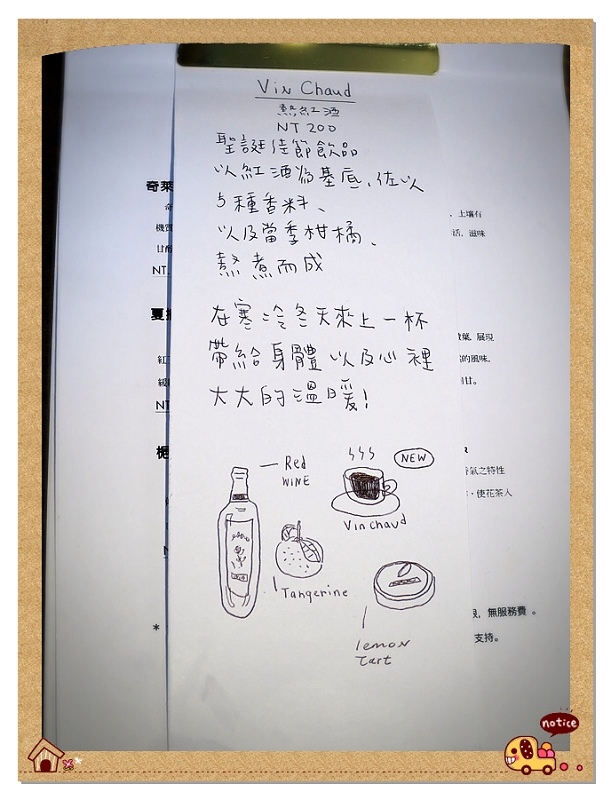 Vin Chaud
熱紅酒
NT 200
聖誕佳節飲品
以紅酒為基底、佐以
5種香料、
以及當季柑橘、
熬煮而成
在寒冷冬天來上一杯
帶給身體以及心裡
大大的溫暖!
Red
WINE
NEW
Vin chaud
Tangerine
lemon
tart
奇萊
甘醇
NT
NT
*
上壤有
滋味
展現
的風味。
之特性
使花茶人
無服務費。
支持。
notice